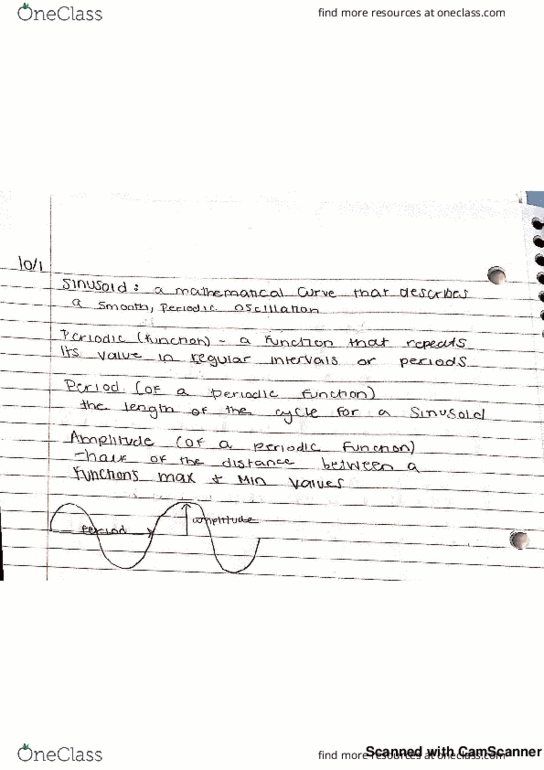 OneClass
find more resources at oneclass.com
10/1
Sinusoid: a mathematical curve that describes
a smooth, periodic oscillation
Periodic (function) - a function that repeats
its value in regular intervals or periods
Period (of a periodic function)
the length of the cycle for a sinusoid
Amplitude (of a periodic function)
- half of the distance between a
functions max + min values
amplitude
period
OneClass
find more resources at oneclass.com
Scanned with CamScanner